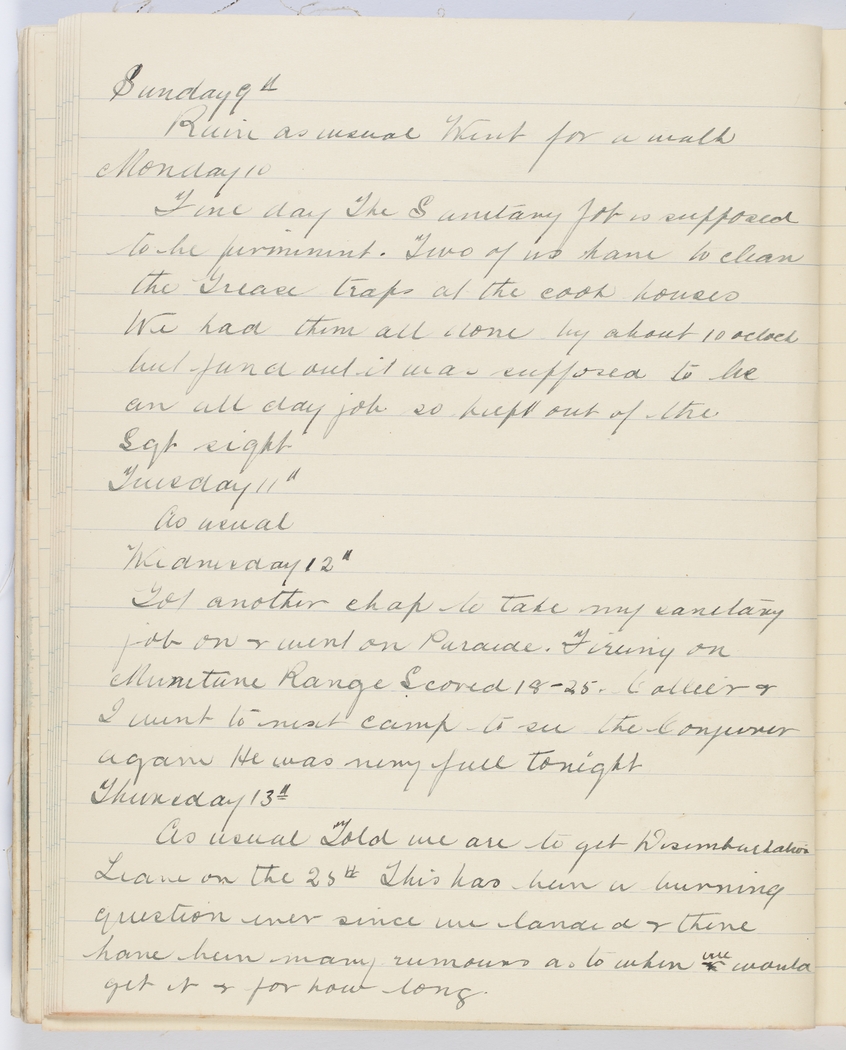 Sunday 9th
Rain as usual Went for a walk
Monday 10
Fine day The Sanitary Job is supposed
to be perminint. Two of us have to clean
the Grease traps at the cook houses
We had them all done by about 10 oclock
but fund out it was supposed to be
an all day job so kept out of the
Sgt sight
Tuesday 11th
As usual
Wednesday 12th
Got another chap to take my sanetary
job on & went on Parade. Fireing on
Range Scored 18-25. Collier &
I went to next camp to see the Conjurer
again He was very full tonight
Thursday 13th
As usual Told we are to get Disembarkation
Leave on the 25th This has been a burning
question ever since we landed & there
have been many rumours as to when we would
get it & for how long.